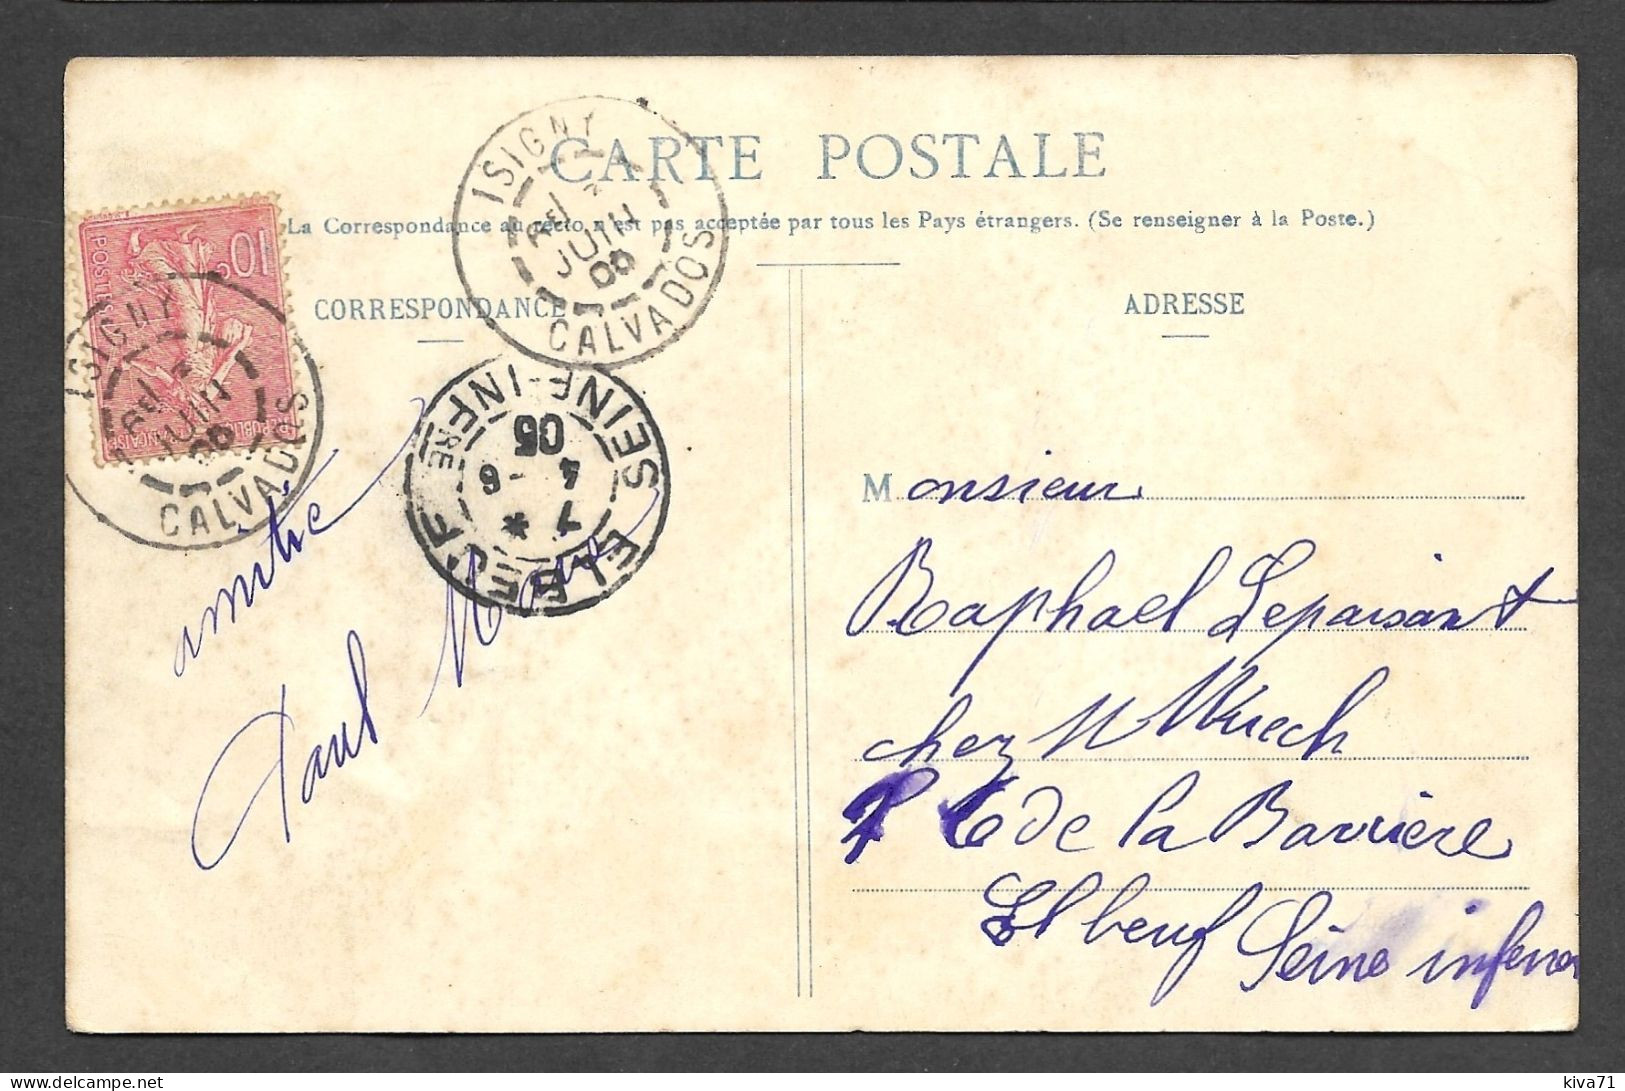 CARTE POSTALE
La Correspondance au recto n'est pas acceptée par tous les Pays étrangers. (Se renseigner à la Poste.)
CORRESPONDANCE
ADRESSE
ISIGNY
JUIN
CALVADOS
10c
POSTES
REPUBLIQUE FRANÇAISE
ISIGNY
JUIN
CALVADOS
ELBEUF
7 *
4 - 6
05
SEINE-INFRE
amitié
Paul
Monsieur
Raphael Lepaisant
chez M
de la Barriere
Elbeuf Seine infer
kiva71